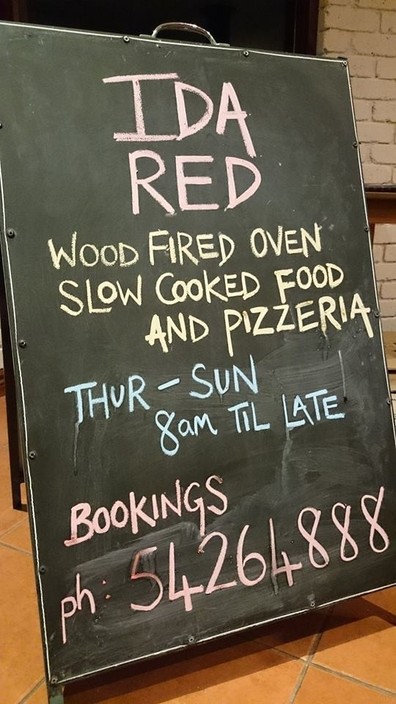 IDA
RED
WOOD FIRED OVEN
SLOW COOKED FOOD
AND PIZZERIA
THUR - SUN
8am TIL LATE
BOOKINGS
ph: 54264888